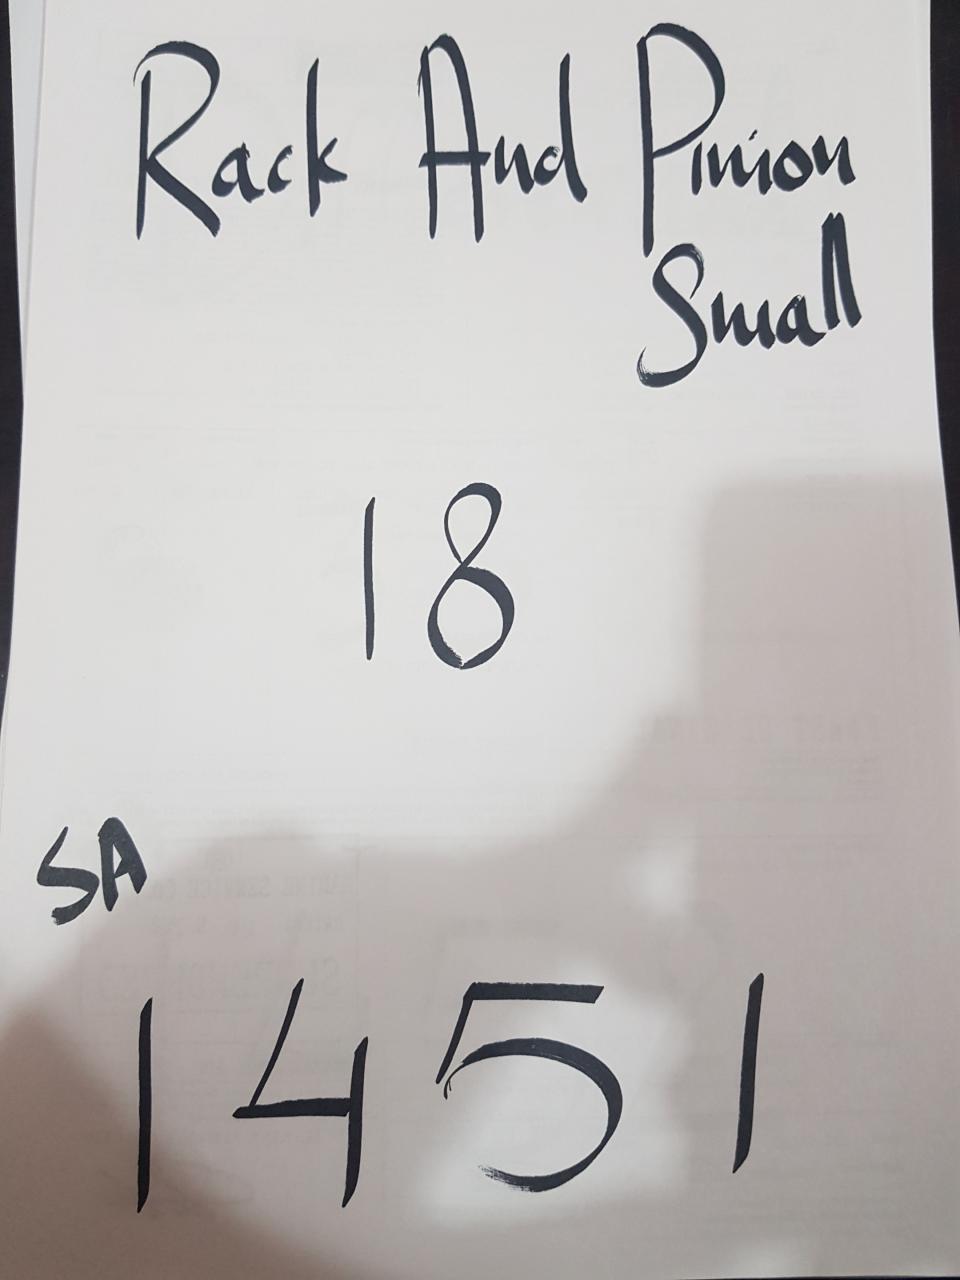 Rack And Pinion
Small
18
SA
1451